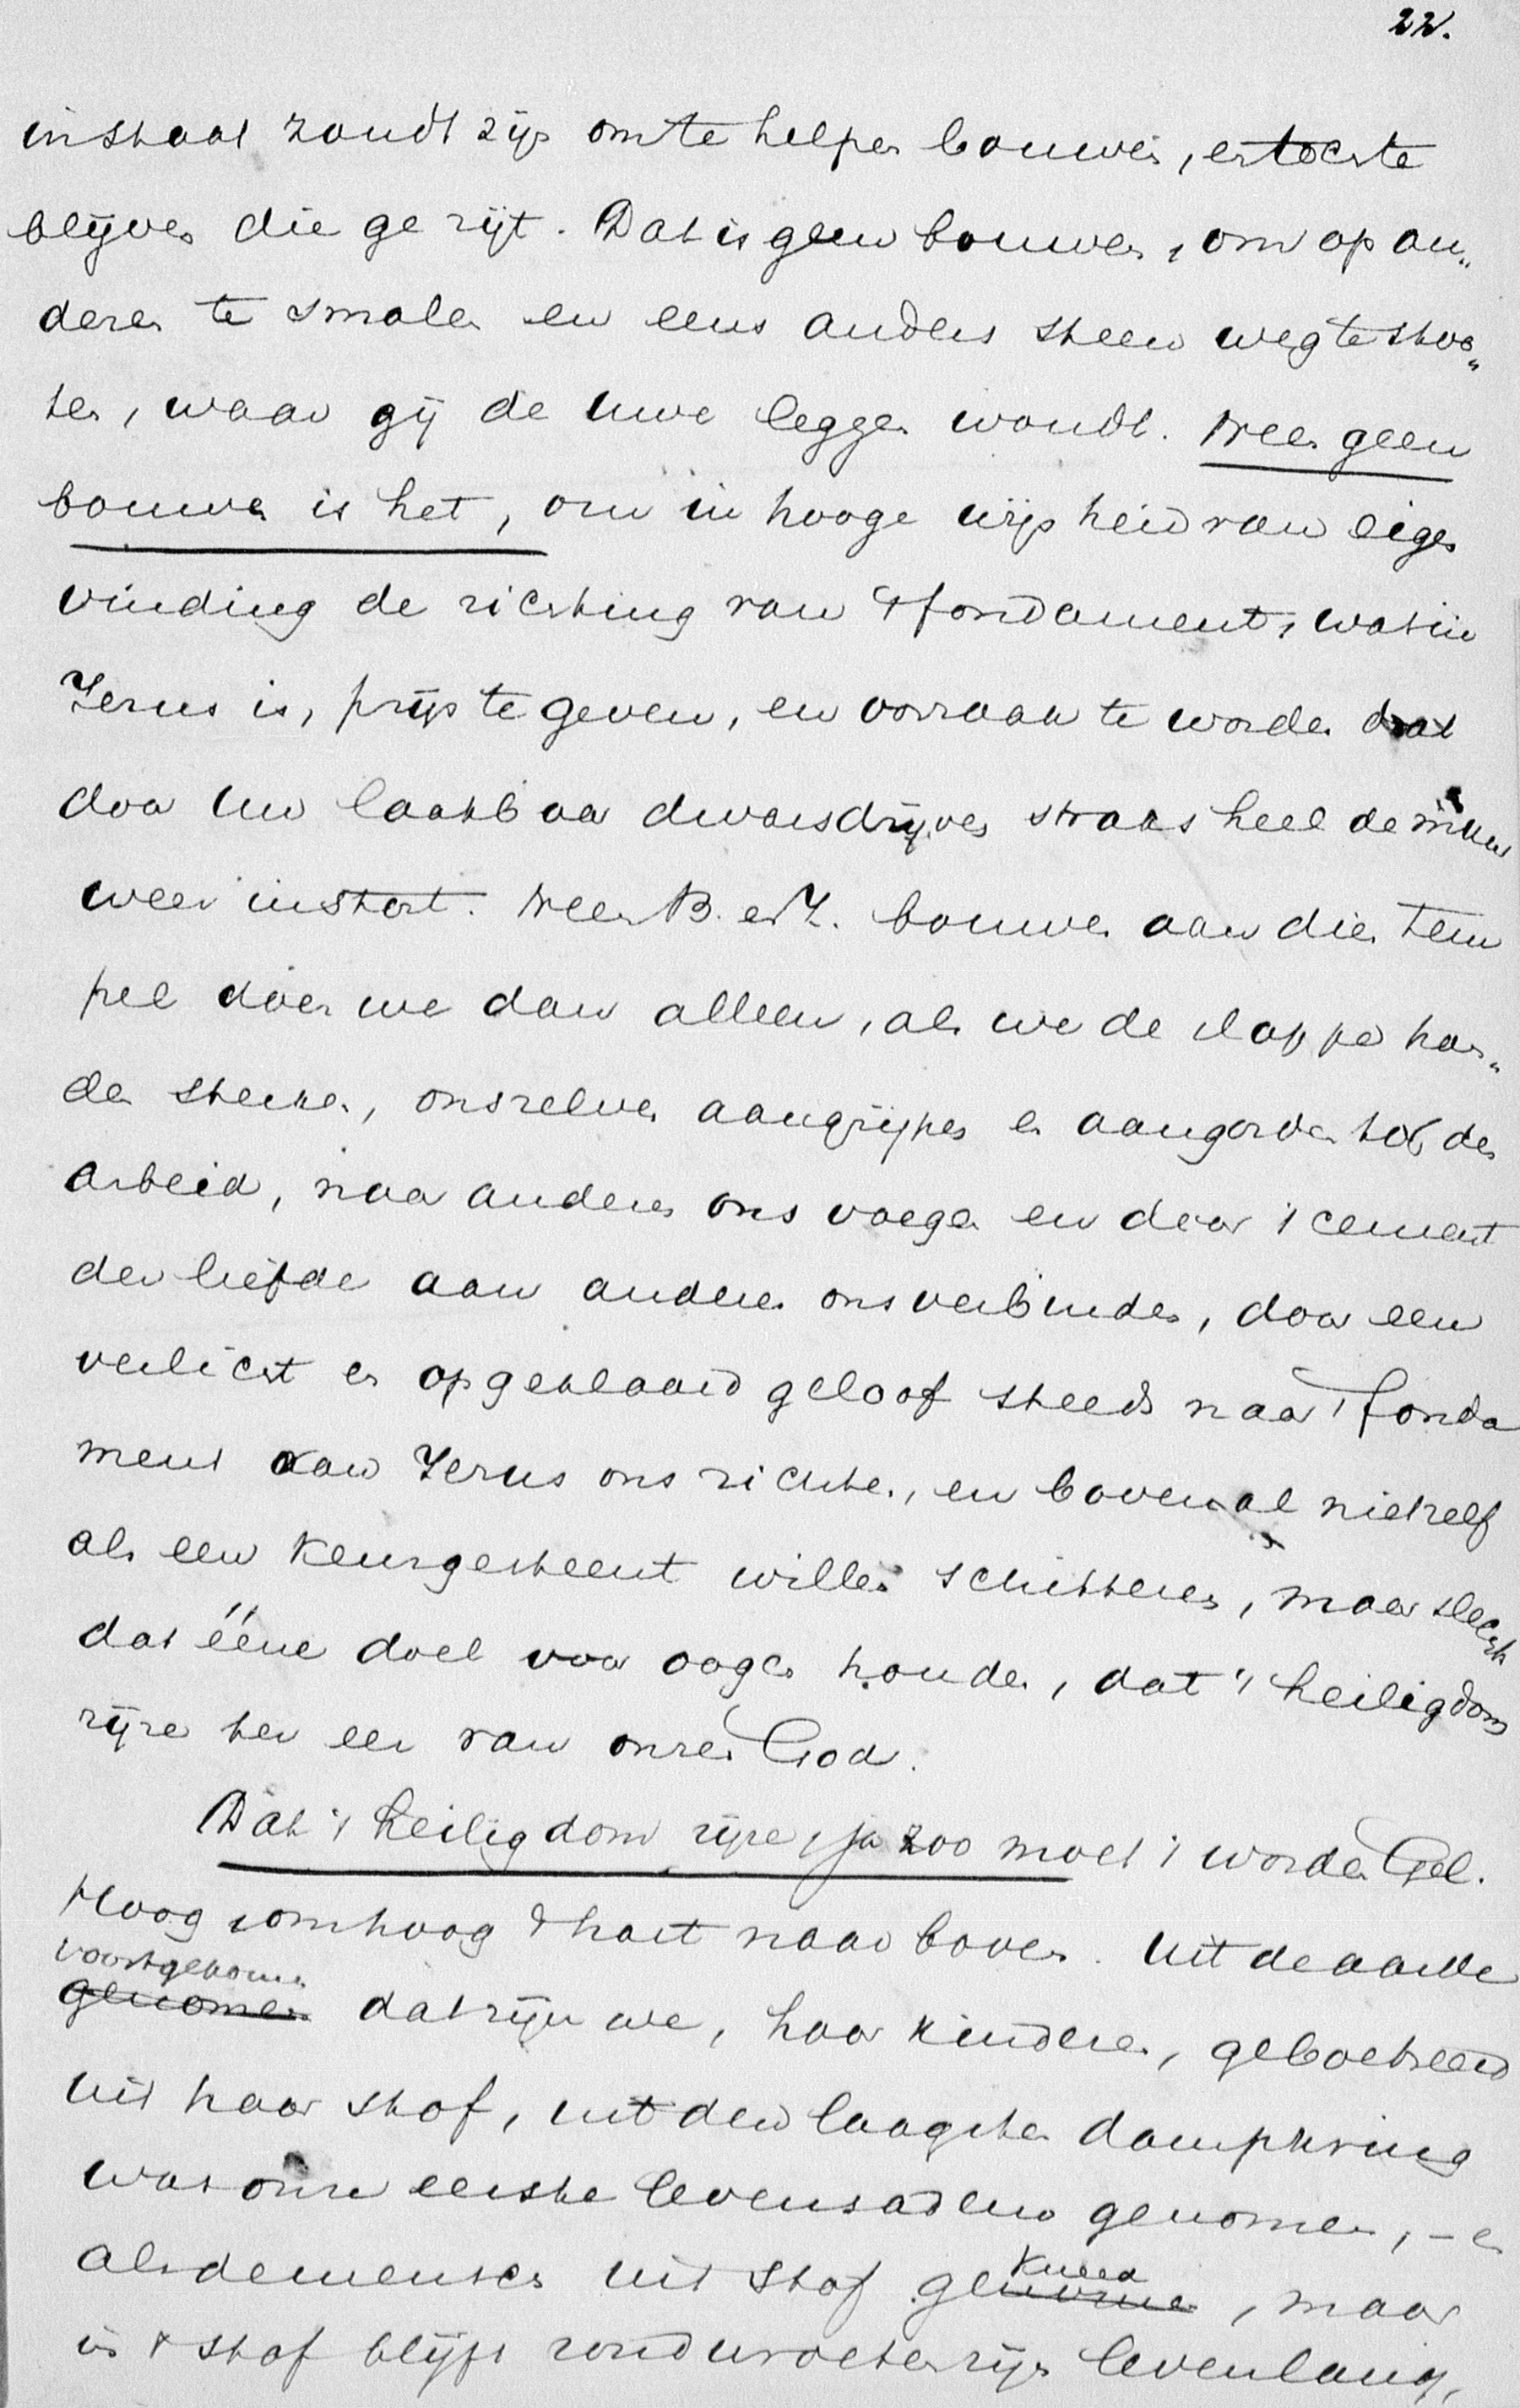 22.
in staat zoudt zijn om te helpen bouwen, en toch te
blijven die ge zijt. Dat is geen bouwen, om op an„
deren te smalen en eens anders steen weg te stoo„
ten, waar gij de uwe leggen woudt. Neen geen
bouwen is het, om in hooge wijsheid van eigen
vinding de richting van 't fondament, wat in
Jezus is, prijs te geven, en oorzaak te worden dat
door uw laakbaar dwarsdrijven straks heel de muur
weer instort. Neen B. en Z. bouwen aan dien tem
pel doen we dan alleen, als we de slappe han„
den sterken, onszelven aangrijpen en aangorden tot den
arbeid, naar anderen ons voegen en door 't cement
der liefde aan anderen ons verbinden, door een
verlicht en opgeklaard geloof steeds naar 't fonda
ment van Jezus ons richten, en bovenal niet zelf
als een keurgesteent willen schitteren, maar slechts
dat ééne doel voor oogen houden, dat 't heiligdom
rijze ter eer van onzen God.
Dat 't heiligdom rijze, ja zoo moet 't worden Gel.
Hoog omhoog 't hart naar boven. Uit de aarde
voortgekomen
genomen dat zijn we, haar kinderen, geboetseerd
uit haar stof, uit den laagsten dampkring
wat onze eerste levensadem genomen, – en
als de mensch uit stof genomen kneed, maar
in 't stof blijft rondwroeten zijn levenlang,